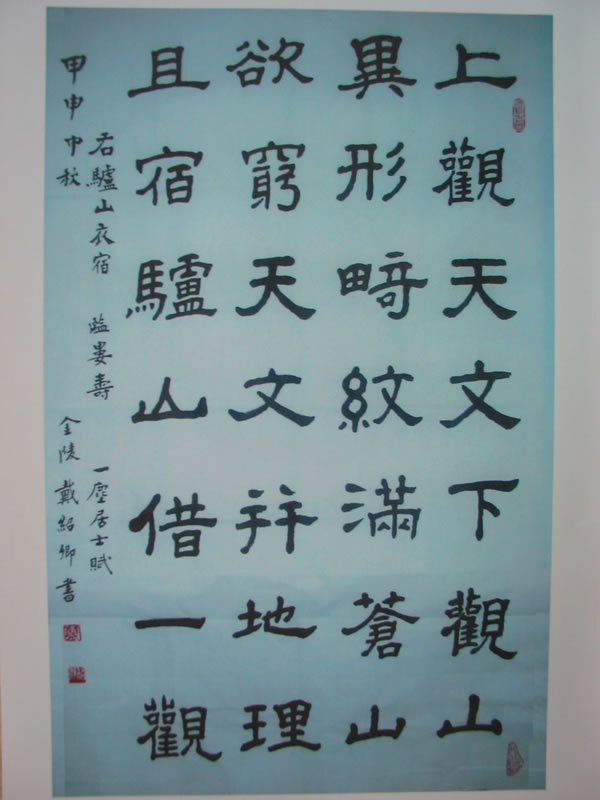 上觀天文下觀山
異形畸紋滿蒼山
欲窮天文并地理
且宿驢山借一觀
右驢山夜宿 臨婁壽 一塵居士賦
甲申中秋 金陵戴紹卿書